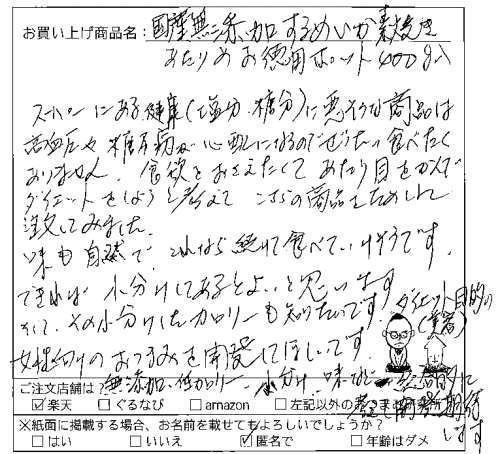 お買い上げ商品名：国産無添加するめいか素焼き
あたりめお徳用ポット400g入
スーパーにある健康(塩分、糖分)に悪そうな商品は
高血圧や糖尿病が心配になるのでぜったい食べたく
ありません。食欲をおさえたくてあたり目をかんで
ダイエットをしようと考えてこちらの商品をためしに
注文してみました。
味も自然で、これなら続けて食べていけそうです。
できれば小分けしてあるとよいと思います
そして、その小分けしたカロリーも知りたいです。
ダイエット目的の
(美容)
女性向けのおつまみを開発してほしいです。
無添加、低カロリー、小分け、味など
総合的に
考えて開発期待
します
ご注文店舗は？
楽天 ぐるなび amazon 左記以外の
※紙面に掲載する場合、お名前を載せてもよろしいでしょうか？
はい いいえ 匿名で 年齢はダメ